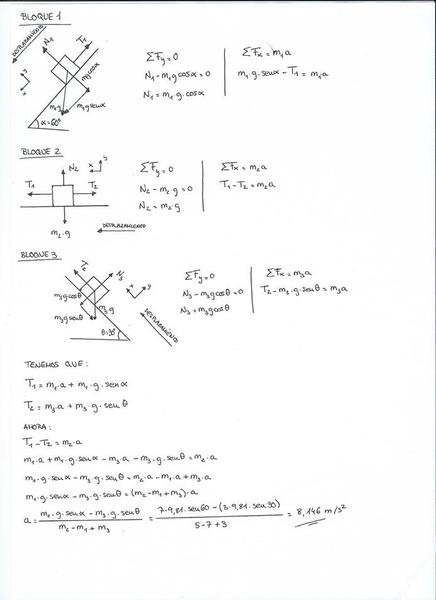 BLOQUE 1
DESPLAZAMIENTO
N₁
T₁
y
x
m₁gcosα
m₁g
m₁g senα
α=60°
ΣFy=0
N₁-m₁gcosα=0
N₁=m₁.g.cosα
ΣFx=m₁a
m₁.g.senα-T₁=m₁a
BLOQUE 2
N₂
x
y
T₁
T₂
m₂.g
DESPLAZAMIENTO
ΣFy=0
N₂-m₂.g=0
N₂=m₂.g
ΣFx=m₂a
T₁-T₂=m₂a
BLOQUE 3
T₂
N₃
x
y
m₃gcosθ
m₃g senθ
m₃.g
θ=30°
DESPLAZAMIENTO
ΣFy=0
N₃-m₃gcosθ=0
N₃=m₃gcosθ
ΣFx=m₃a
T₂-m₃.g.senθ=m₃a
TENEMOS QUE:
T₁=m₁.a+m₁.g.senα
T₂=m₃.a+m₃ g.senθ
AHORA:
T₁-T₂=m₂.a
m₁.a+m₁.g.senα-m₃.a-m₃.g.senθ=m₂.a
m₁.g.senα-m₃.g.senθ=m₂.a-m₁.a+m₃.a
m₁.g.senα-m₃.g.senθ=(m₂-m₁+m₃).a
a = (m₁.g.senα-m₃.g.senθ)/(m₂-m₁+m₃) = (7.9,81.sen60-(3.9,81.sen30))/(5-7+3) = 8,146 m/s²